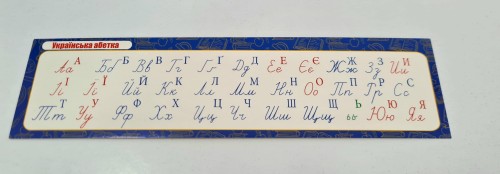 Українська абетка
Аа А Бб Б Вв В Гг Г Ґґ Ґ Дд Д Ее Е Єє Є Жж Ж Зз З Ии И
Іі І Її Ї Йй Й Кк К Лл Л Мм М Нн Н Оо О Пп П Рр Р Сс С
Тт Т Уу У Фф Ф Хх Х Цц Ц Чч Ч Шш Ш Щщ Щ ьь Ь Юю Ю Яя Я